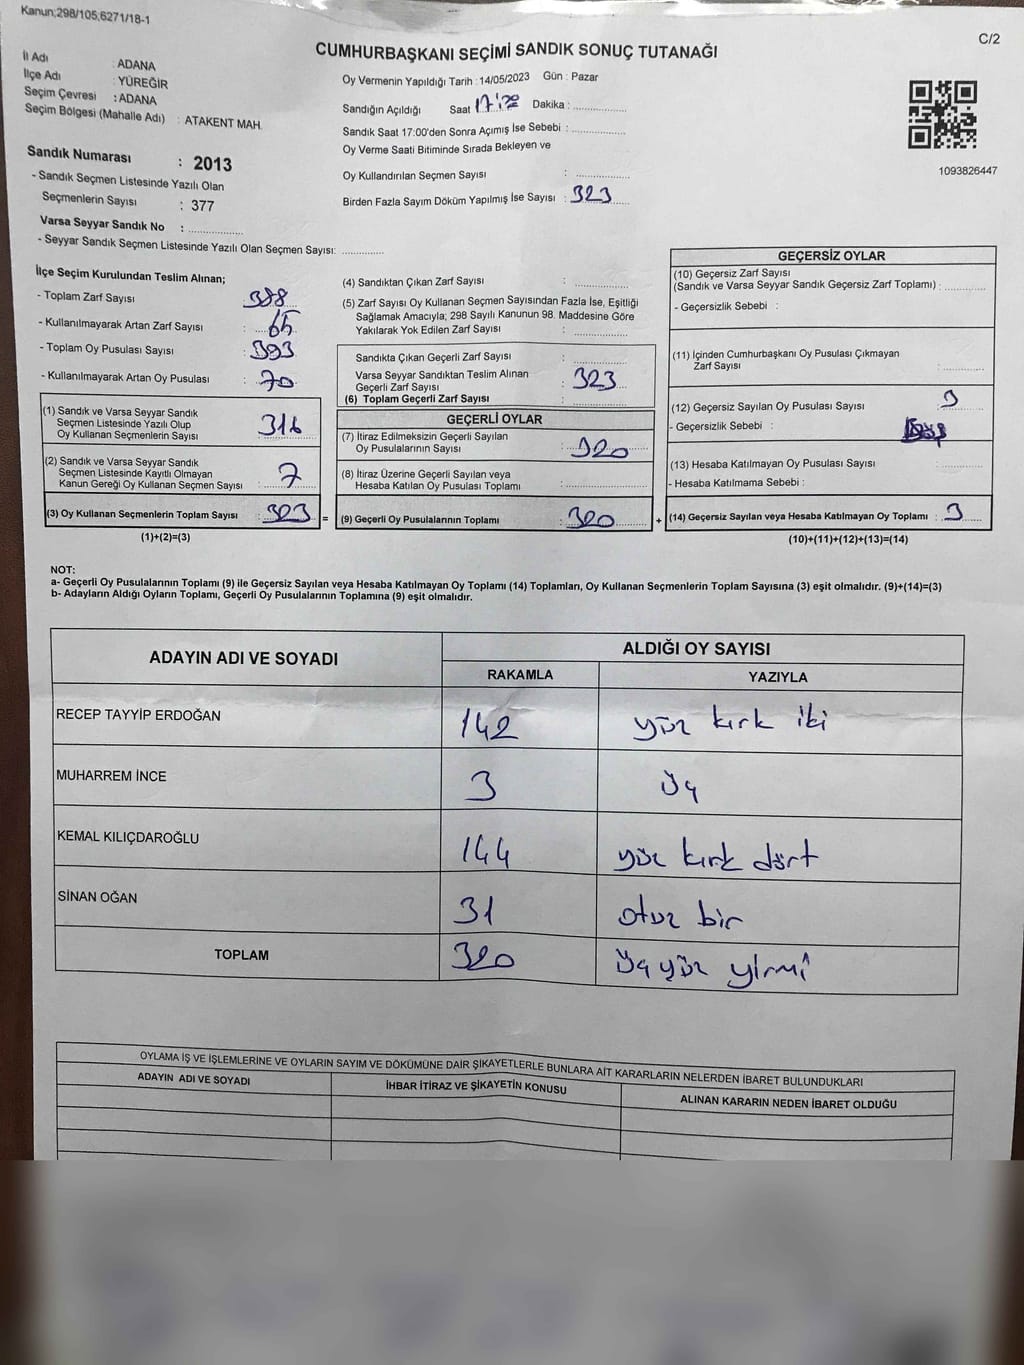 Kanun;298/105;6271/18-1
C/2
CUMHURBAŞKANI SEÇİMİ SANDIK SONUÇ TUTANAĞI
İl Adı : ADANA
İlçe Adı : YÜREĞİR
Seçim Çevresi : ADANA
Seçim Bölgesi (Mahalle Adı) : ATAKENT MAH.
Sandık Numarası : 2013
- Sandık Seçmen Listesinde Yazılı Olan
Seçmenlerin Sayısı : 377
Varsa Seyyar Sandık No :
- Seyyar Sandık Seçmen Listesinde Yazılı Olan Seçmen Sayısı:
Oy Vermenin Yapıldığı Tarih : 14/05/2023 Gün : Pazar
Sandığın Açıldığı Saat Dakika :
Sandık Saat 17:00'den Sonra Açımış İse Sebebi :
Oy Verme Saati Bitiminde Sırada Bekleyen ve
Oy Kullandırılan Seçmen Sayısı :
Birden Fazla Sayım Döküm Yapılmış İse Sayısı : 323
1093826447
İlçe Seçim Kurulundan Teslim Alınan;
- Toplam Zarf Sayısı : 388
- Kullanılmayarak Artan Zarf Sayısı : 65
- Toplam Oy Pusulası Sayısı : 393
- Kullanılmayarak Artan Oy Pusulası : 70
(1) Sandık ve Varsa Seyyar Sandık
Seçmen Listesinde Yazılı Olup
Oy Kullanan Seçmenlerin Sayısı : 316
(2) Sandık ve Varsa Seyyar Sandık
Seçmen Listesinde Kayıtlı Olmayan
Kanun Gereği Oy Kullanan Seçmen Sayısı : 7
(3) Oy Kullanan Seçmenlerin Toplam Sayısı : 323 =
(1)+(2)=(3)
(4) Sandıktan Çıkan Zarf Sayısı :
(5) Zarf Sayısı Oy Kullanan Seçmen Sayısından Fazla İse, Eşitliği
Sağlamak Amacıyla; 298 Sayılı Kanunun 98. Maddesine Göre
Yakılarak Yok Edilen Zarf Sayısı :
Sandıkta Çıkan Geçerli Zarf Sayısı :
Varsa Seyyar Sandıktan Teslim Alınan
Geçerli Zarf Sayısı : 323
(6) Toplam Geçerli Zarf Sayısı :
GEÇERLİ OYLAR
(7) İtiraz Edilmeksizin Geçerli Sayılan
Oy Pusulalarının Sayısı : 320
(8) İtiraz Üzerine Geçerli Sayılan veya
Hesaba Katılan Oy Pusulası Toplamı :
(9) Geçerli Oy Pusulalarının Toplamı : 320 +
GEÇERSİZ OYLAR
(10) Geçersiz Zarf Sayısı
(Sandık ve Varsa Seyyar Sandık Geçersiz Zarf Toplamı) :
- Geçersizlik Sebebi :
(11) İçinden Cumhurbaşkanı Oy Pusulası Çıkmayan
Zarf Sayısı :
(12) Geçersiz Sayılan Oy Pusulası Sayısı : 3
- Geçersizlik Sebebi :
(13) Hesaba Katılmayan Oy Pusulası Sayısı :
- Hesaba Katılmama Sebebi :
(14) Geçersiz Sayılan veya Hesaba Katılmayan Oy Toplamı : 3
(10)+(11)+(12)+(13)=(14)
NOT:
a- Geçerli Oy Pusulalarının Toplamı (9) ile Geçersiz Sayılan veya Hesaba Katılmayan Oy Toplamı (14) Toplamları, Oy Kullanan Seçmenlerin Toplam Sayısına (3) eşit olmalıdır. (9)+(14)=(3)
b- Adayların Aldığı Oyların Toplamı, Geçerli Oy Pusulalarının Toplamına (9) eşit olmalıdır.
ADAYIN ADI VE SOYADI ALDIĞI OY SAYISI
RAKAMLA YAZIYLA
RECEP TAYYİP ERDOĞAN 142 yüz kırk iki
MUHARREM İNCE 3 üç
KEMAL KILIÇDAROĞLU 144 yüz kırk dört
SİNAN OĞAN 31 otuz bir
TOPLAM 320 üçyüz yirmi
OYLAMA İŞ VE İŞLEMLERİNE VE OYLARIN SAYIM VE DÖKÜMÜNE DAİR ŞİKAYETLERLE BUNLARA AİT KARARLARIN NELERDEN İBARET BULUNDUKLARI
ADAYIN ADI VE SOYADI İHBAR İTİRAZ VE ŞİKAYETİN KONUSU ALINAN KARARIN NEDEN İBARET OLDUĞU